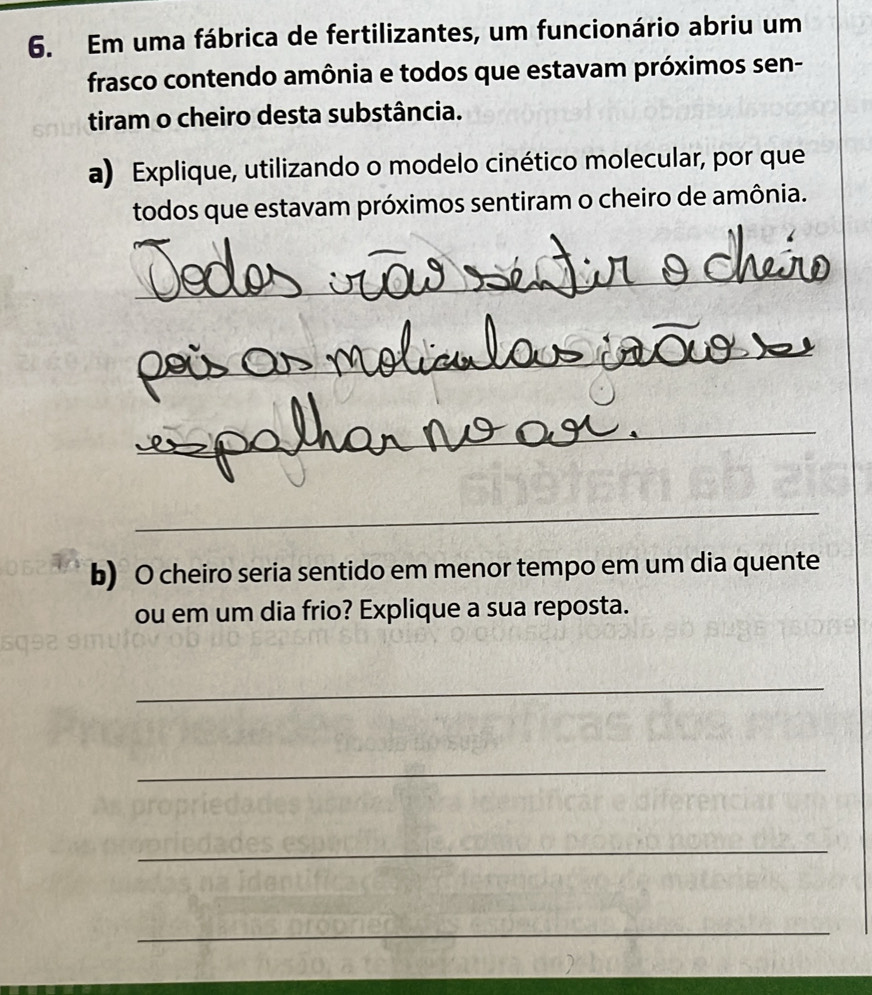 6. Em uma fábrica de fertilizantes, um funcionário abriu um
frasco contendo amônia e todos que estavam próximos sen-
tiram o cheiro desta substância.
a) Explique, utilizando o modelo cinético molecular, por que
todos que estavam próximos sentiram o cheiro de amônia.
Todos irão sentir o cheiro
pois as moliculas irão se
espalhar no ar.
b) O cheiro seria sentido em menor tempo em um dia quente
ou em um dia frio? Explique a sua reposta.